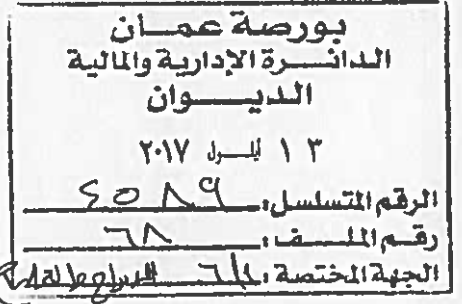 بورصة عمان
الدائرة الإدارية والمالية
الديوان
١٣ أيلول ٢٠١٧
الرقم المتسلسل: ٤٥٨٩
رقم الملف: ٦٨
الجهة المختصة: